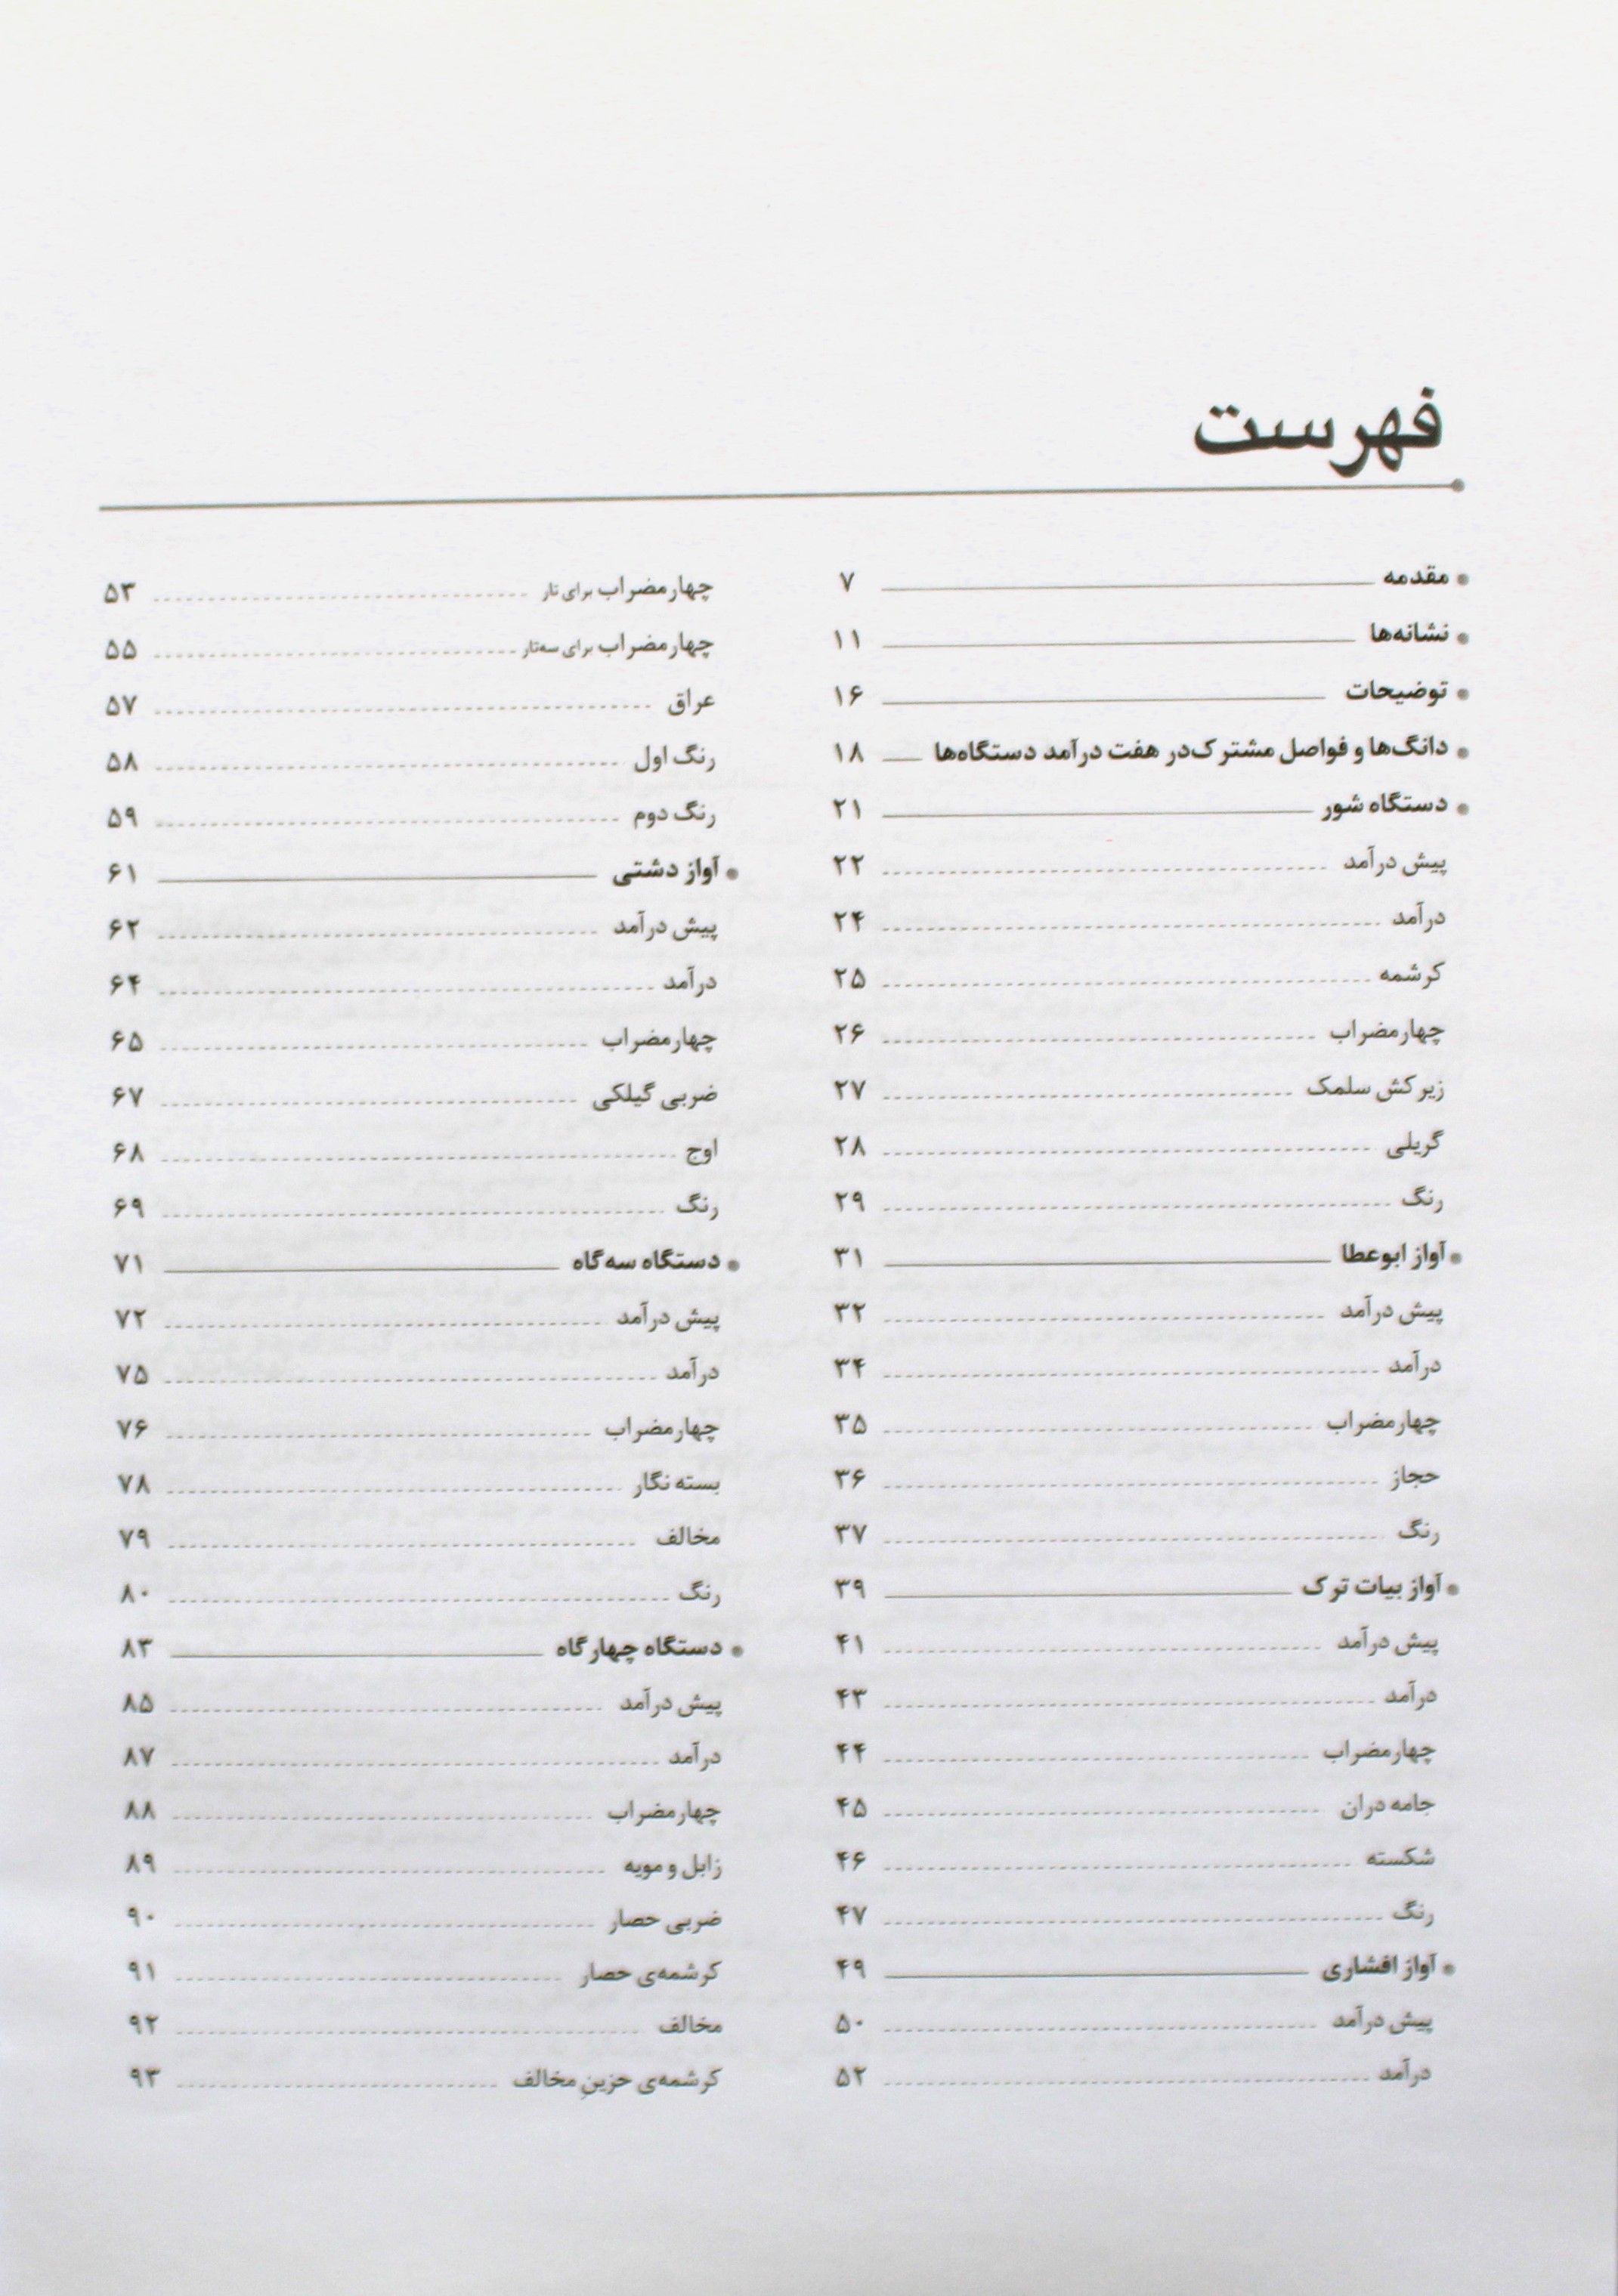 فهرست
مقدمه ۷
نشانه‌ها ۱۱
توضیحات ۱۶
دانگ‌ها و فواصل مشترک‌در هفت درآمد دستگاه‌ها ۱۸
دستگاه شور ۲۱
پیش درآمد ۲۲
درآمد ۲۴
کرشمه ۲۵
چهارمضراب ۲۶
زیرکش سلمک ۲۷
گریلی ۲۸
رنگ ۲۹
آواز ابوعطا ۳۱
پیش درآمد ۳۲
درآمد ۳۴
چهارمضراب ۳۵
حجاز ۳۶
رنگ ۳۷
آواز بیات ترک ۳۹
پیش درآمد ۴۱
درآمد ۴۳
چهارمضراب ۴۴
جامه دران ۴۵
شکسته ۴۶
رنگ ۴۷
آواز افشاری ۴۹
پیش درآمد ۵۰
درآمد ۵۲
چهارمضراب برای تار ۵۳
چهارمضراب برای سه‌تار ۵۵
عراق ۵۷
رنگ اول ۵۸
رنگ دوم ۵۹
آواز دشتی ۶۱
پیش درآمد ۶۲
درآمد ۶۴
چهارمضراب ۶۵
ضربی گیلکی ۶۷
اوج ۶۸
رنگ ۶۹
دستگاه سه‌گاه ۷۱
پیش درآمد ۷۲
درآمد ۷۵
چهارمضراب ۷۶
بسته نگار ۷۸
مخالف ۷۹
رنگ ۸۰
دستگاه چهارگاه ۸۳
پیش درآمد ۸۵
درآمد ۸۷
چهارمضراب ۸۸
زابل و مویه ۸۹
ضربی حصار ۹۰
کرشمه‌ی حصار ۹۱
مخالف ۹۲
کرشمه‌ی حزینِ مخالف ۹۳